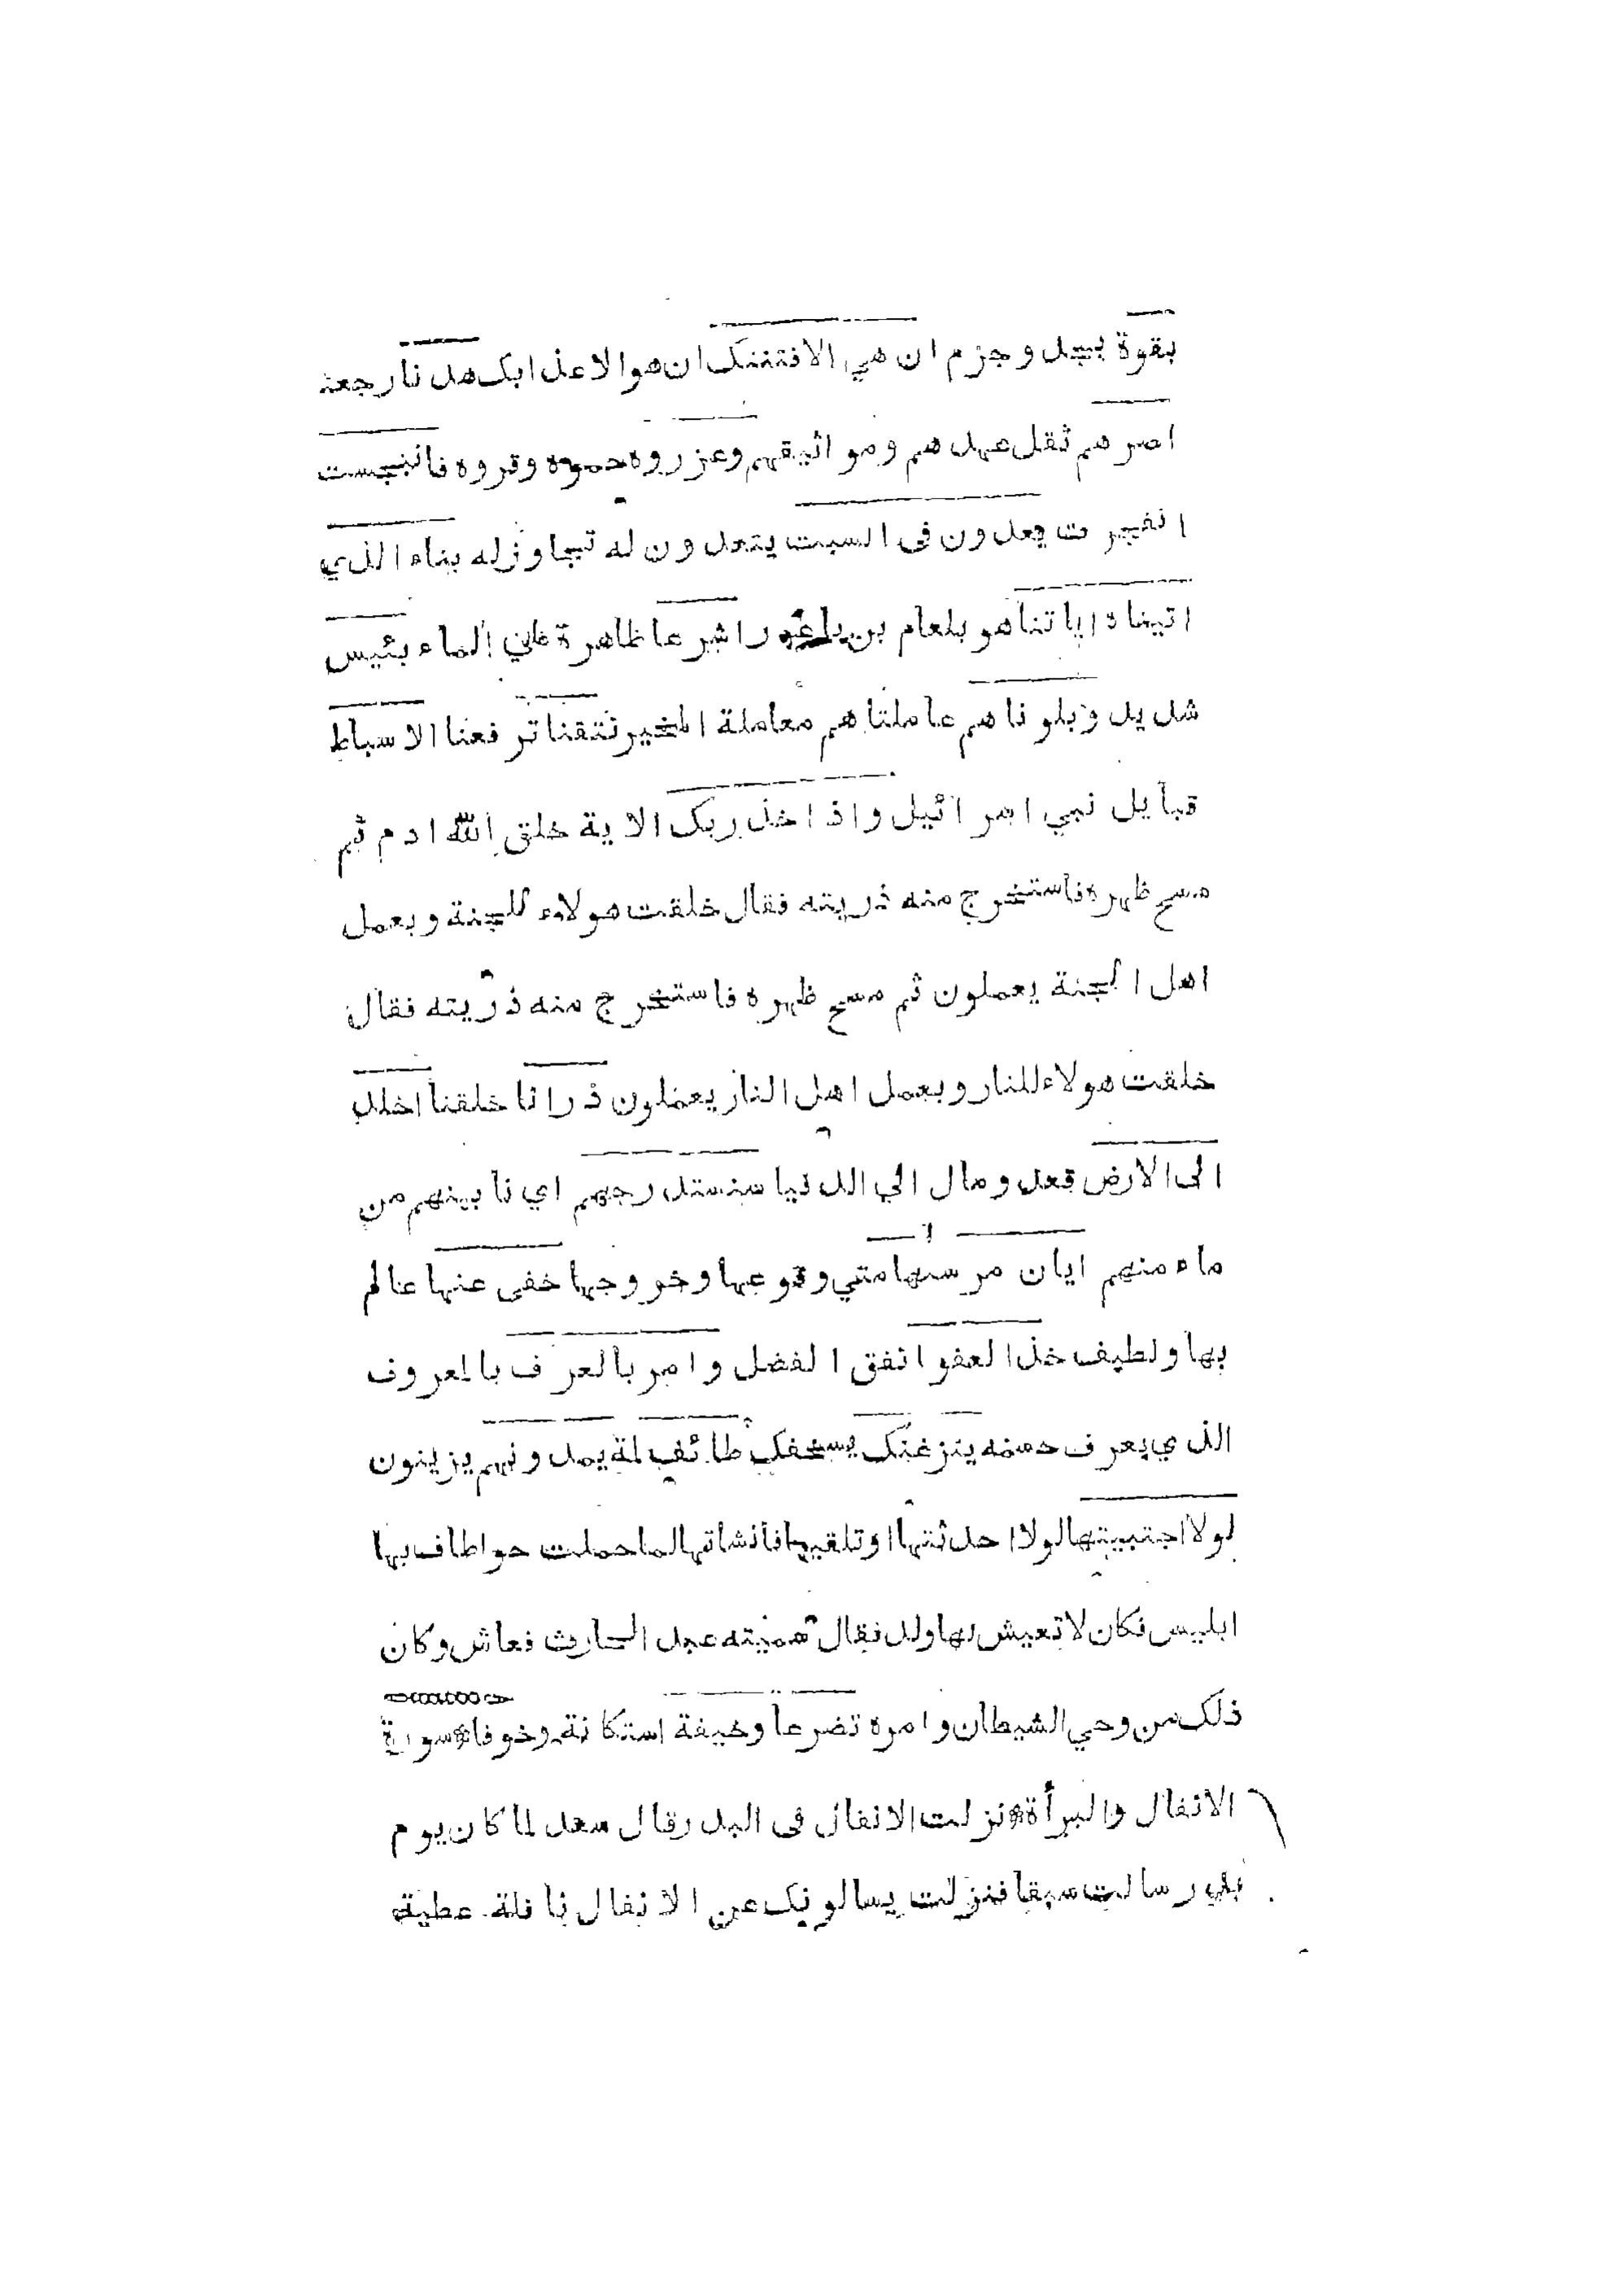 بقوة بجد و جزم ان هي الا فتنتك ان هو الا عذابك هدنا رجعنا
اصرهم ثقل عهدهم و مواثيقهم وعزروه حموه وقروه فانبجست
انفجرت يعدون في السبت يتعدون له تجاوز له بناء الذي
اتيناه اياتنا هو بلعام بن باعورا شرعا ظاهرة على الماء بئيس
شديد وبلونا هم عاملنا هم معاملة المخبر نتقنا ترفعنا الاسباط
قبايل نبي اسرائيل واذ اخذ ربك الاية خلق الله ادم ثم
مسح ظهره فاستخرج منه ذريته فقال خلقت هولاء للجنة وبعمل
اهل الجنة يعملون ثم مسح ظهره فاستخرج منه ذريته فقال
خلقت هولاء للنار وبعمل اهل النار يعملون ذرانا خلقنا اخلد
الى الارض قعد ومال الي الدنيا سنستدرجهم اي نا بينهم من
ماءمنهم ايان مرسها متي وقوعها وخروجها حفى عنها عالم
بها ولطيف خذ العفو انفق الفضل وامر بالعرف بالمعروف
الذي يعرف حسنه ينزغنك يستخفك طائف لمة يمدونهم يزينون
لولا اجتبيتها لولا احدثتها اوتلقيها فانشاتها لما حملت حوا طاف بها
ابليس فكان لا تعيش لها ولد فقال سميته عبد الحارث فعاش وكان
ذلك من وحي الشيطان و امره تضرعا وخيفة استكانة وخوفا سورة
الانفال والبرأة نزلت الانفال في البدر قال سعد لما كان يوم
بدر سالت سيفا فنزلت يسالونك عن الانفال نافلة عطية